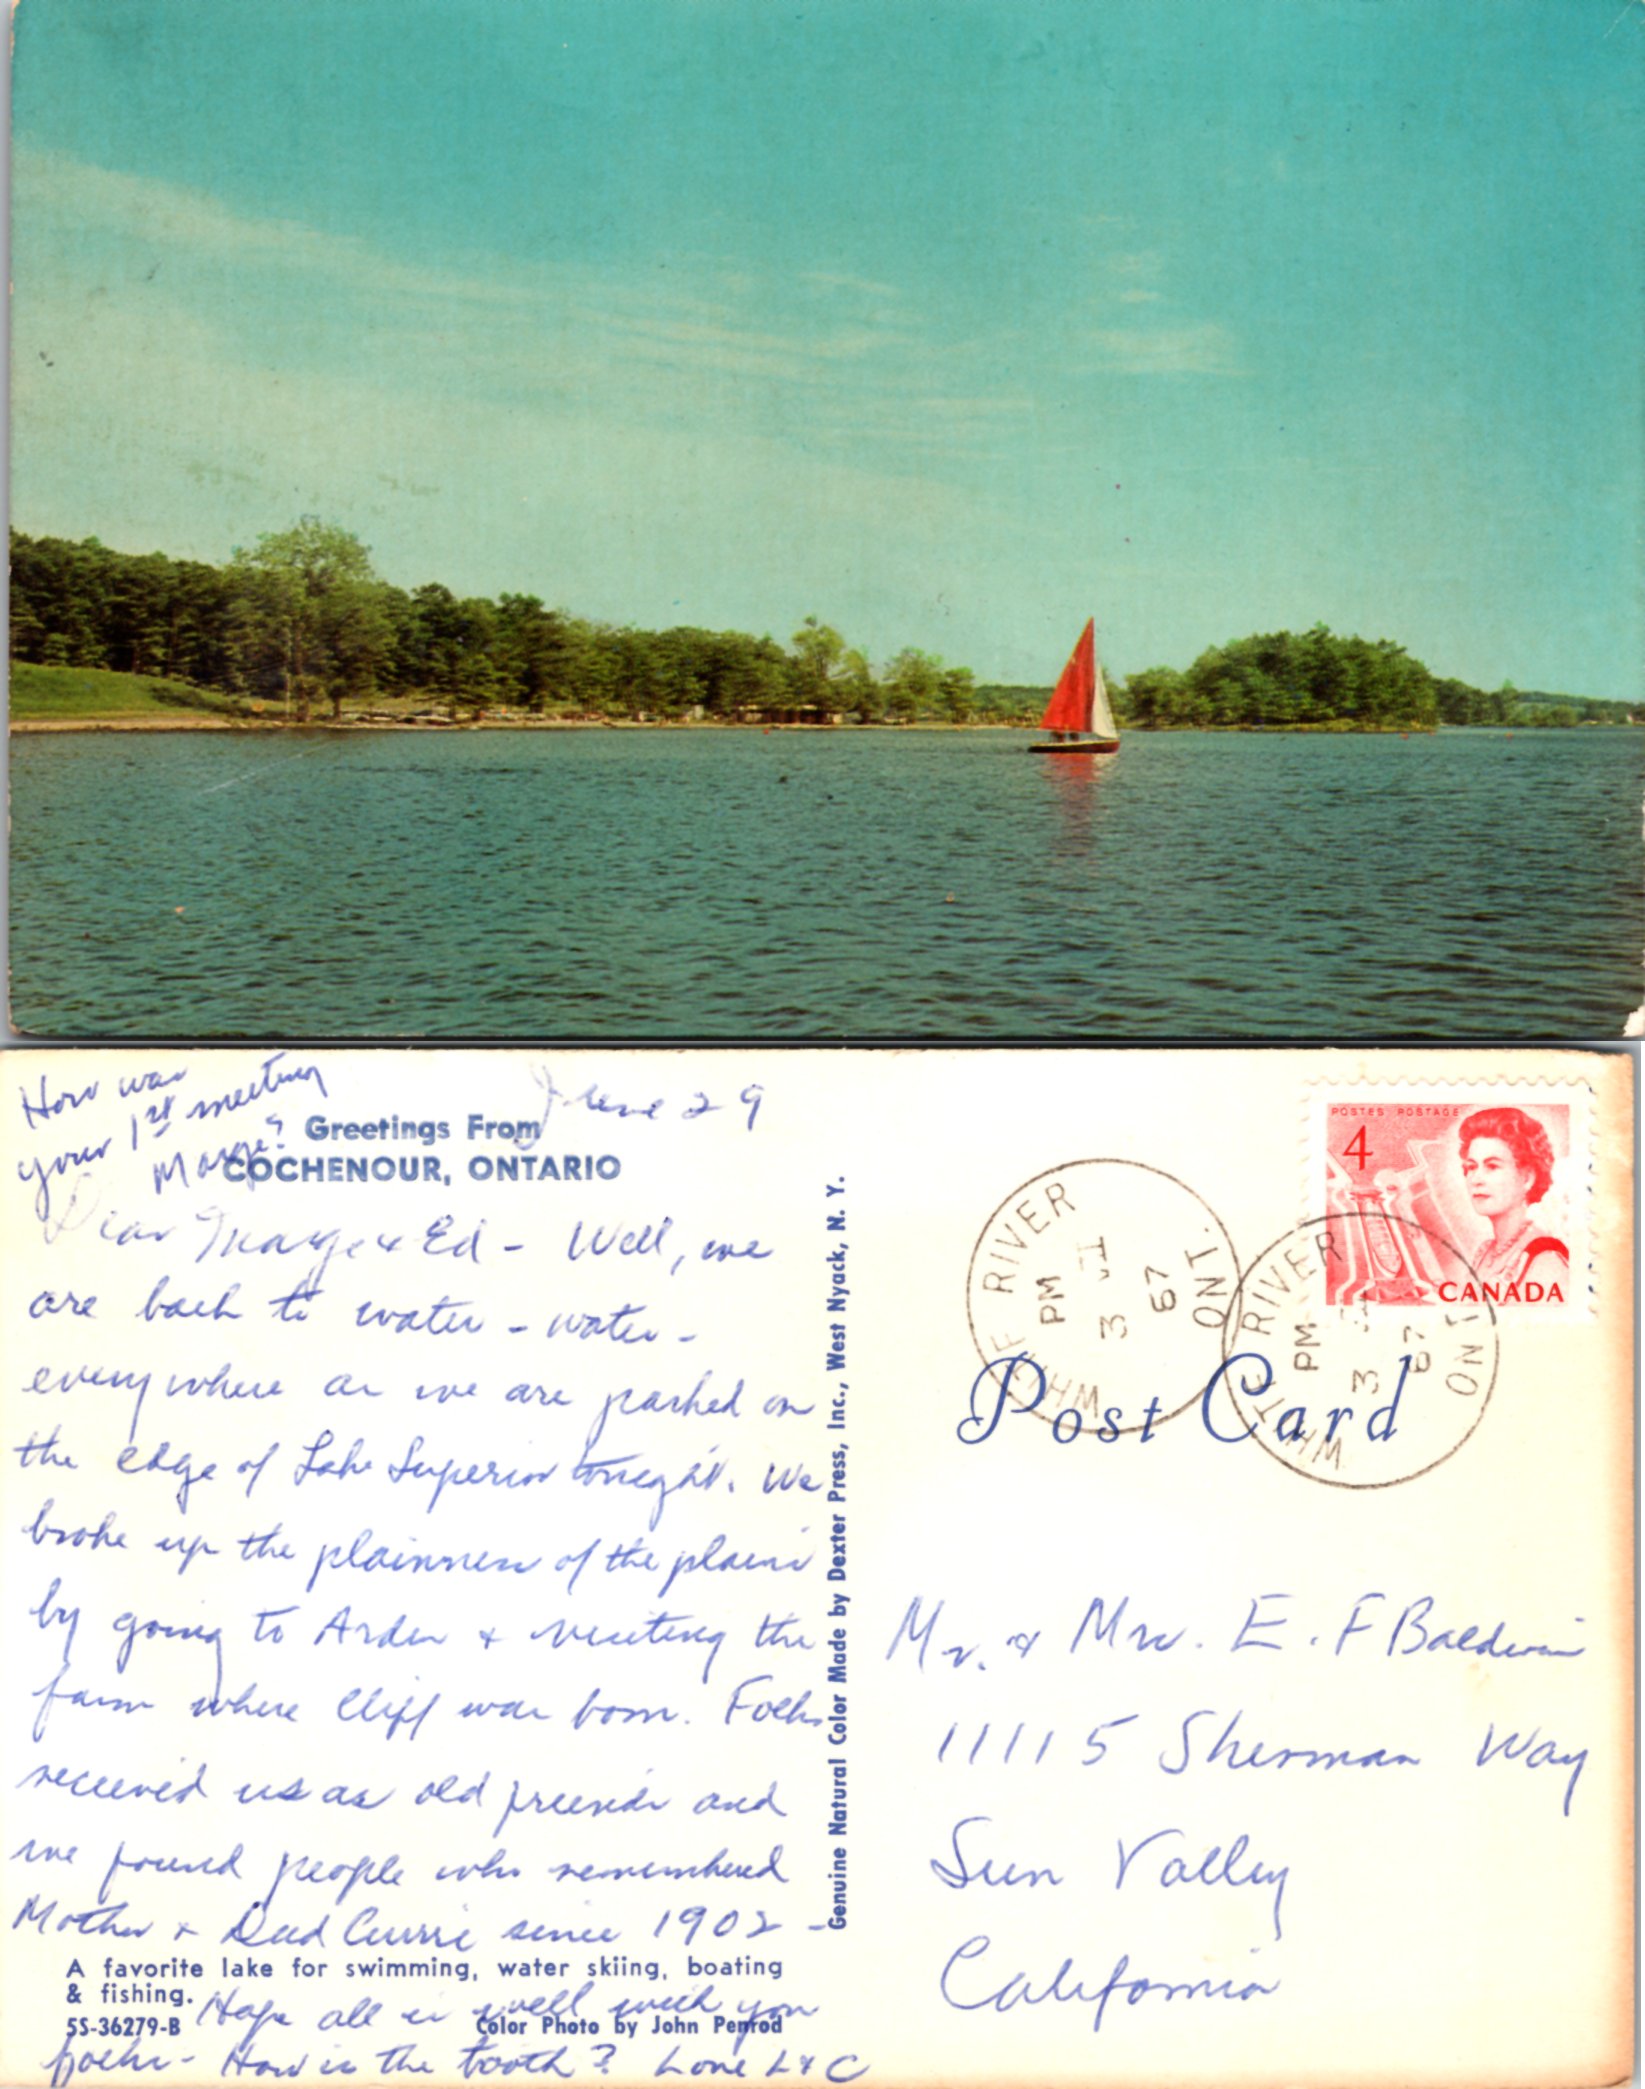 How was
your 1st meeting
Marge?
June 29
Greetings From
COCHENOUR, ONTARIO
Dear Marge & Ed - Well, we
are back to water - water -
everywhere as we are parked on
the edge of Lake Superior tonight. We
broke up the plainness of the plains
by going to Arden & visiting the
farm where Cliff was born. Folks
received us as old friends and
we found people who remembered
Mother & Dad Currie since 1902 -
A favorite lake for swimming, water skiing, boating
& fishing.
Hope all is well with you
5S-36279-B
Color Photo by John Penrod
folks - How is the tooth? Love L & C
Genuine Natural Color Made by Dexter Press, Inc., West Nyack, N. Y.
POSTES POSTAGE
4
CANADA
WHITE RIVER
PM
3 JI
67
ONT.
WHITE RIVER
PM
3
67
ONT
Post Card
Mr. & Mrs. E. F Baldwin
11115 Sherman Way
Sun Valley
California